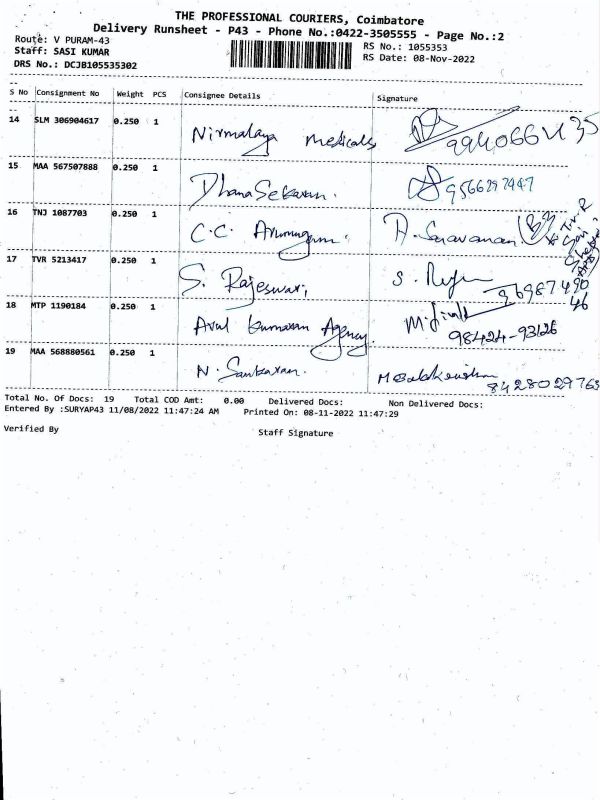 THE PROFESSIONAL COURIERS, Coimbatore
Delivery Runsheet - P43 - Phone No.:0422-3505555 - Page No.:2
Route: V PURAM-43
RS No.: 1055353
Staff: SASI KUMAR
RS Date: 08-Nov-2022
DRS No.: DCJB105535302
S No Consignment No Weight PCS Consignee Details Signature
14 SLM 306904617 0.250 1 Nirmalaya Medicals
15 MAA 567507888 0.250 1 DhanaSekaran. 9566297947
16 TNJ 1087703 0.250 1 C.C. Arumugam. A. Saravanan
17 TVR 5213417 0.250 1 S. Rajeswari,
18 MTP 1190184 0.250 1 Arul kumaran Agency 98424-93126
19 MAA 568880561 0.250 1 N. Sankaran. 8428029763
Total No. Of Docs: 19 Total COD Amt: 0.00 Delivered Docs: Non Delivered Docs:
Entered By :SURYAP43 11/08/2022 11:47:24 AM Printed On: 08-11-2022 11:47:29
Verified By Staff Signature